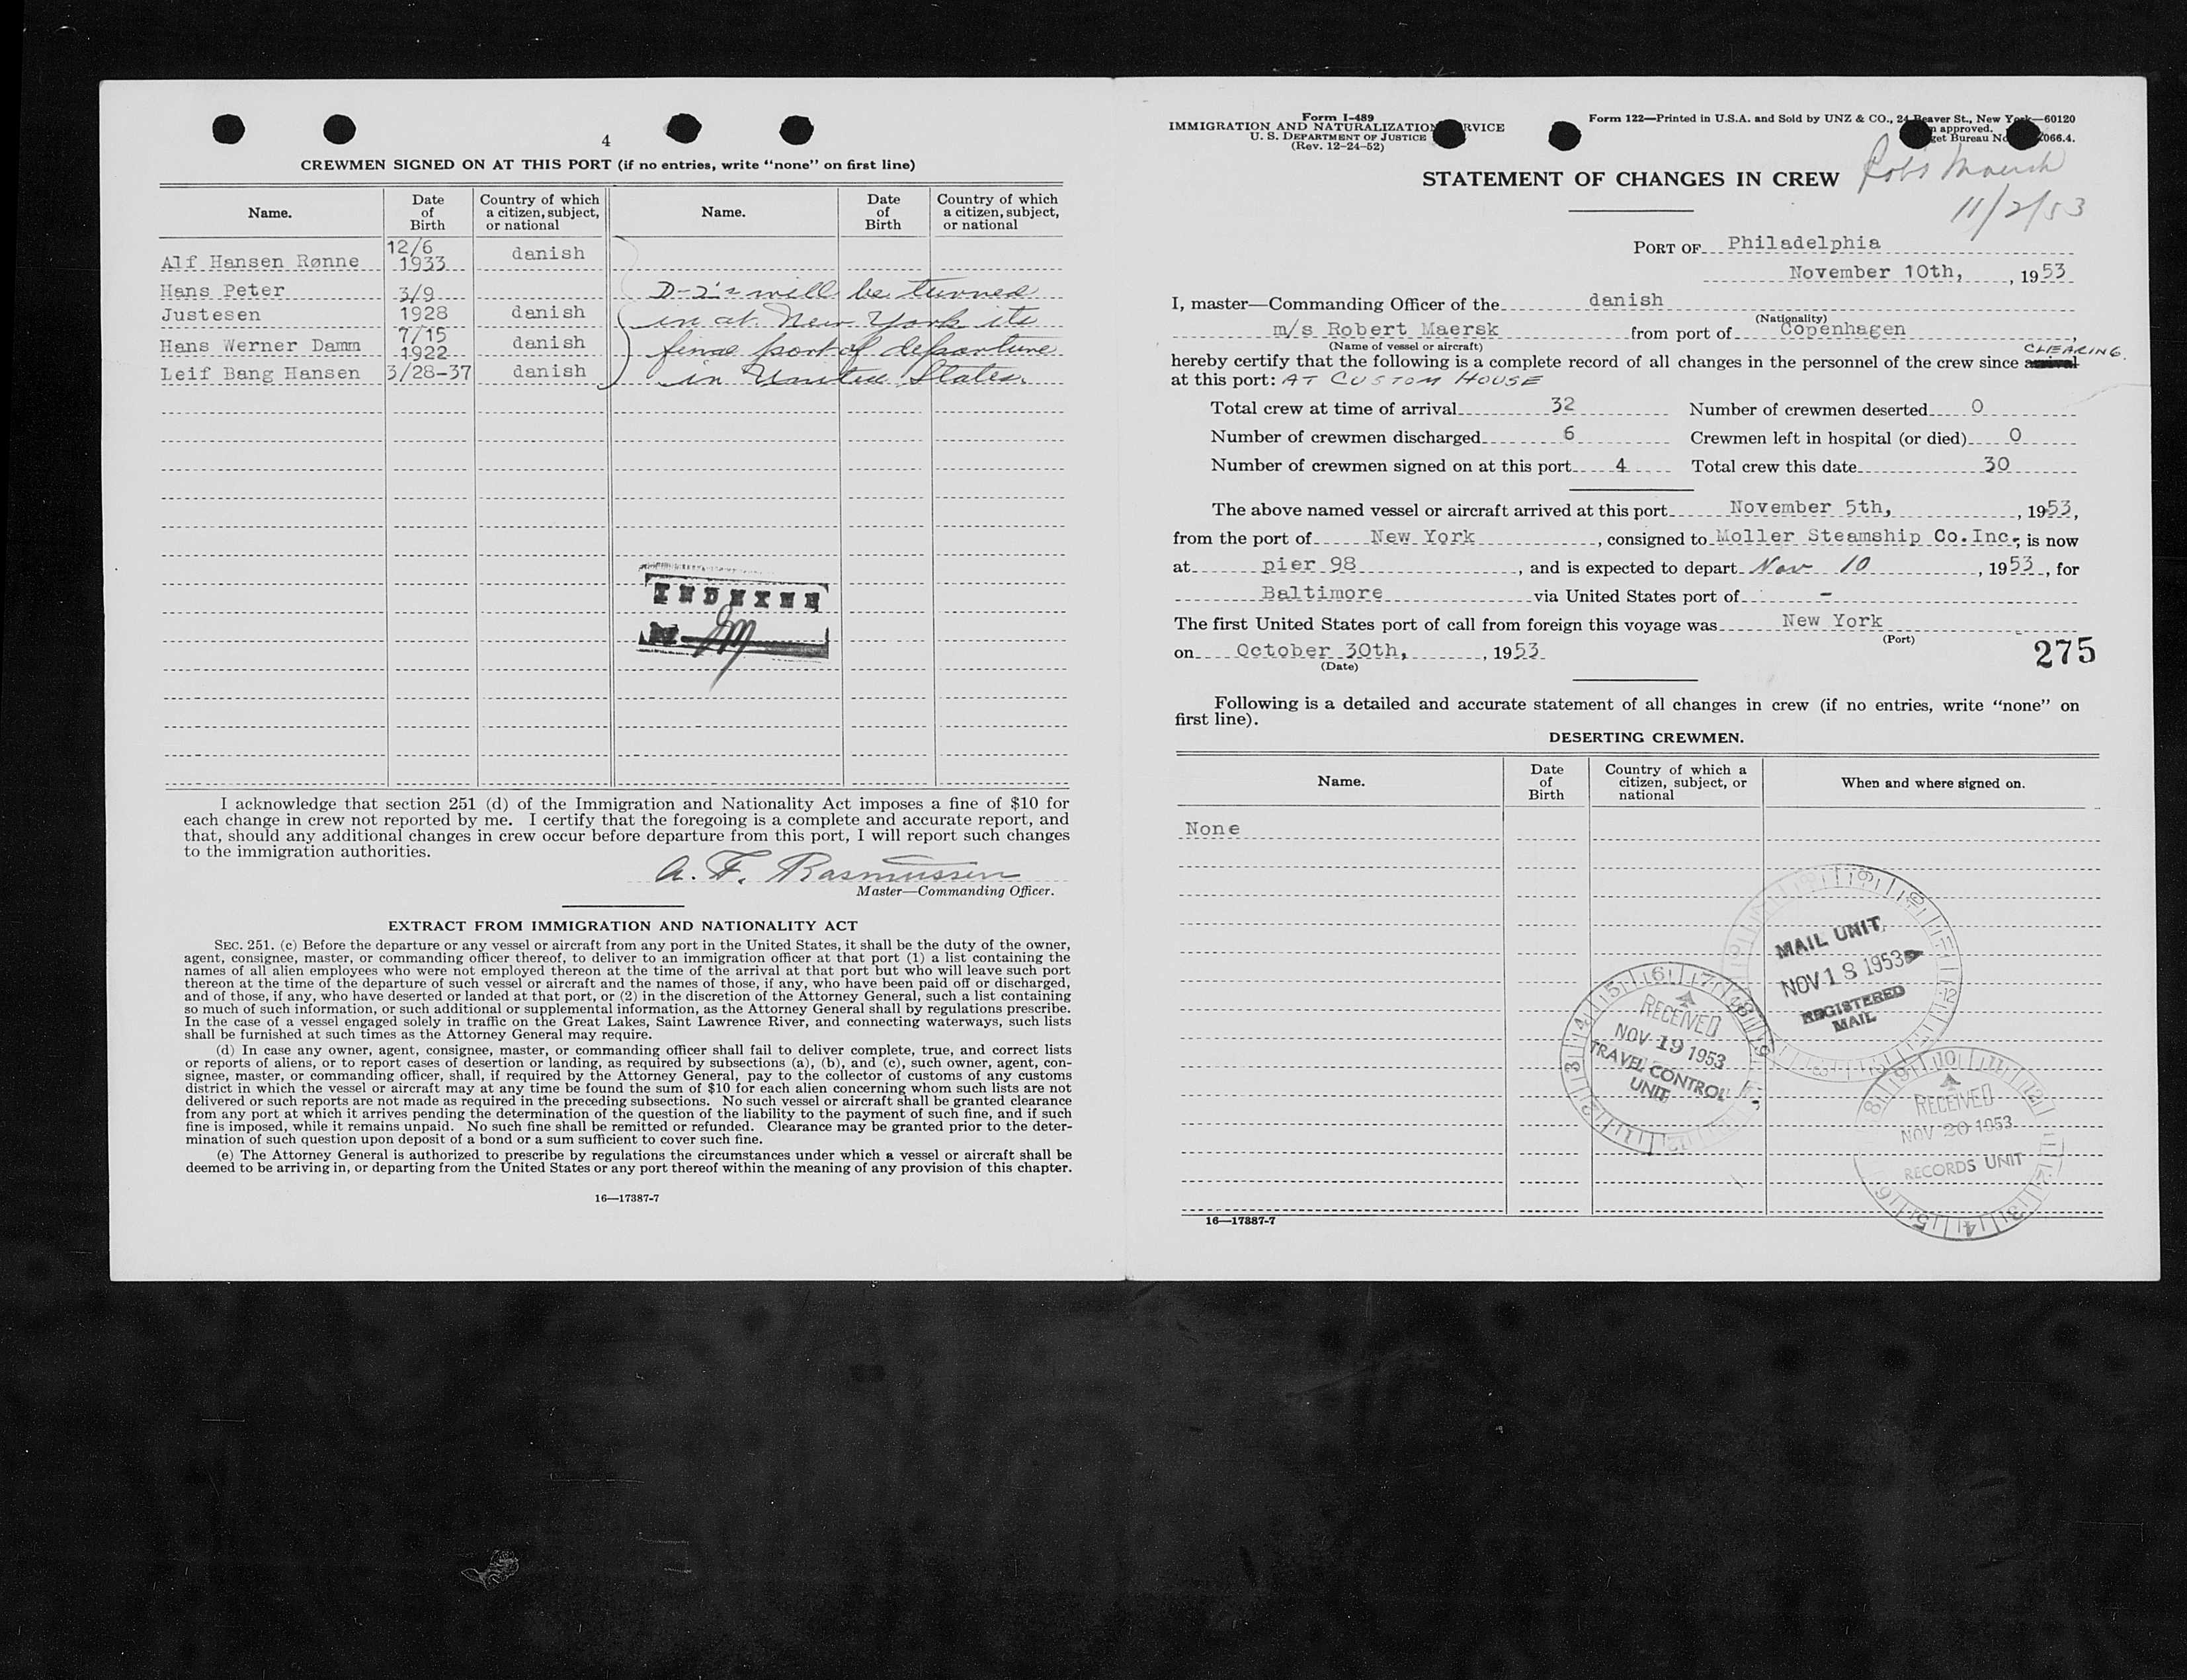 4
CREWMEN SIGNED ON AT THIS PORT (if no entries, write “none” on first line)
Name. Date of Birth Country of which a citizen, subject, or national Name. Date of Birth Country of which a citizen, subject, or national
Alf Hansen Rønne 12/6 1933 danish
Hans Peter Justesen 3/9 1928 danish
Hans Werner Damm 7/15 1922 danish
Leif Bang Hansen 3/28-37 danish
D-2's will be turned
in at New York its
final port of departure
in United States.
INDEXED
I acknowledge that section 251 (d) of the Immigration and Nationality Act imposes a fine of $10 for
each change in crew not reported by me. I certify that the foregoing is a complete and accurate report, and
that, should any additional changes in crew occur before departure from this port, I will report such changes
to the immigration authorities.
A. F. Rasmussen
Master—Commanding Officer.
EXTRACT FROM IMMIGRATION AND NATIONALITY ACT
SEC. 251. (c) Before the departure or any vessel or aircraft from any port in the United States, it shall be the duty of the owner,
agent, consignee, master, or commanding officer thereof, to deliver to an immigration officer at that port (1) a list containing the
names of all alien employees who were not employed thereon at the time of the arrival at that port but who will leave such port
thereon at the time of the departure of such vessel or aircraft and the names of those, if any, who have been paid off or discharged,
and of those, if any, who have deserted or landed at that port, or (2) in the discretion of the Attorney General, such a list containing
so much of such information, or such additional or supplemental information, as the Attorney General shall by regulations prescribe.
In the case of a vessel engaged solely in traffic on the Great Lakes, Saint Lawrence River, and connecting waterways, such lists
shall be furnished at such times as the Attorney General may require.
(d) In case any owner, agent, consignee, master, or commanding officer shall fail to deliver complete, true, and correct lists
or reports of aliens, or to report cases of desertion or landing, as required by subsections (a), (b), and (c), such owner, agent, con-
signee, master, or commanding officer, shall, if required by the Attorney General, pay to the collector of customs of any customs
district in which the vessel or aircraft may at any time be found the sum of $10 for each alien concerning whom such lists are not
delivered or such reports are not made as required in the preceding subsections. No such vessel or aircraft shall be granted clearance
from any port at which it arrives pending the determination of the question of the liability to the payment of such fine, and if such
fine is imposed, while it remains unpaid. No such fine shall be remitted or refunded. Clearance may be granted prior to the deter-
mination of such question upon deposit of a bond or a sum sufficient to cover such fine.
(e) The Attorney General is authorized to prescribe by regulations the circumstances under which a vessel or aircraft shall be
deemed to be arriving in, or departing from the United States or any port thereof within the meaning of any provision of this chapter.
16—17387-7
Form I-489
IMMIGRATION AND NATURALIZATION SERVICE
U. S. DEPARTMENT OF JUSTICE
(Rev. 12-24-52)
Form 122—Printed in U.S.A. and Sold by UNZ & CO., 24 Beaver St., New York—60120
approved.
Bureau No. 066.4.
STATEMENT OF CHANGES IN CREW
Robt Maersk
11/2/53
PORT OF Philadelphia
November 10th, , 1953
I, master—Commanding Officer of the danish
(Nationality)
m/s Robert Maersk from port of Copenhagen ,
(Name of vessel or aircraft)
hereby certify that the following is a complete record of all changes in the personnel of the crew since arrival CLEARING
at this port: AT CUSTOM HOUSE
Total crew at time of arrival 32 Number of crewmen deserted 0
Number of crewmen discharged 6 Crewmen left in hospital (or died) 0
Number of crewmen signed on at this port 4 Total crew this date 30
The above named vessel or aircraft arrived at this port November 5th, , 1953,
from the port of New York , consigned to Moller Steamship Co.Inc., is now
at pier 98 , and is expected to depart Nov 10 , 1953, for
Baltimore via United States port of -
The first United States port of call from foreign this voyage was New York
(Port)
on October 30th, , 1953
(Date)
275
Following is a detailed and accurate statement of all changes in crew (if no entries, write “none” on
first line).
DESERTING CREWMEN.
Name. Date of Birth Country of which a citizen, subject, or national When and where signed on.
None
MAIL UNIT
NOV 18 1953
REGISTERED
MAIL
RECEIVED
NOV 19 1953
TRAVEL CONTROL
UNIT
RECEIVED
NOV 20 1953
RECORDS UNIT
16—17387-7